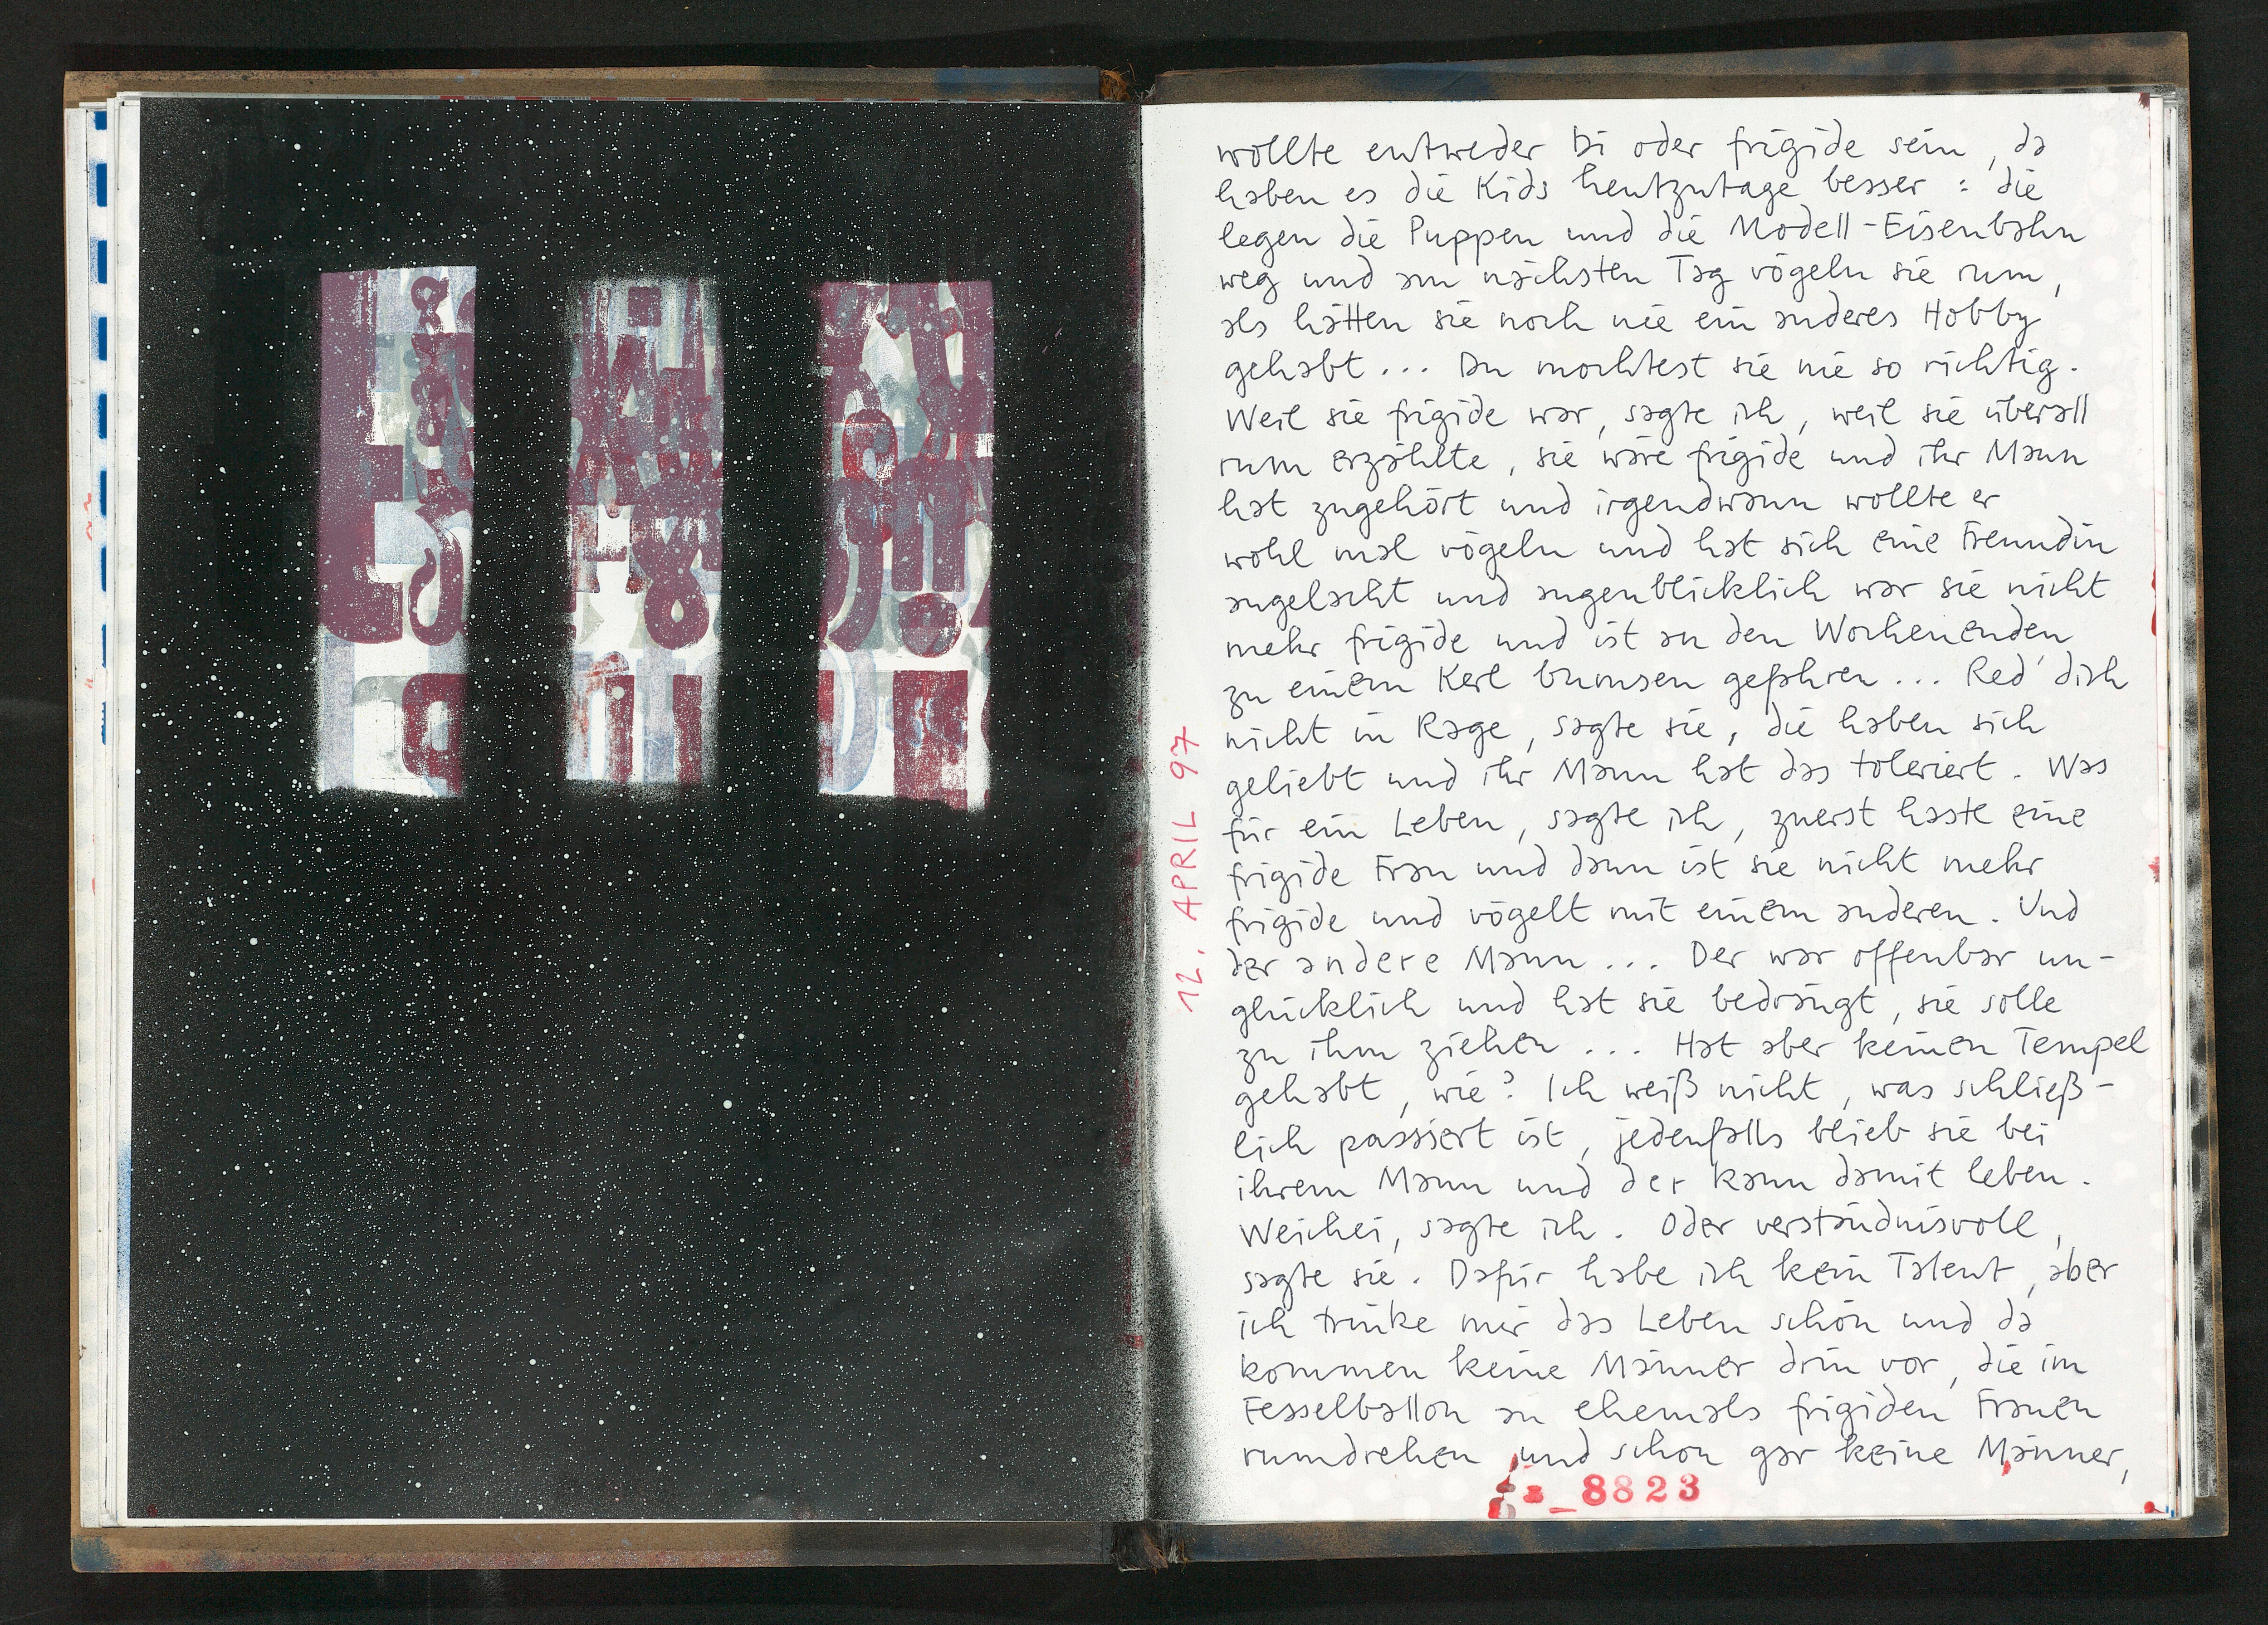 wollte entweder bi oder frigide sein, da
haben es die Kids heutzutage besser: die
legen die Puppen und die Modell-Eisenbahn
weg und am nächsten Tag vögeln sie rum,
als hätten sie noch nie ein anderes Hobby
gehabt... Du mochtest sie nie so richtig.
Weil sie frigide war, sagte ich, weil sie überall
rum erzählte, sie wäre frigide und ihr Mann
hat zugehört und irgendwann wollte er
wohl mal vögeln und hat sich eine Freundin
angelacht und augenblicklich war sie nicht
mehr frigide und ist an den Wochenenden
zu einem Kerl bumsen gefahren... Red' dich
nicht in Rage, sagte sie, die haben sich
geliebt und ihr Mann hat das toleriert. Was
für ein Leben, sagte ich, zuerst haste eine
frigide Frau und dann ist sie nicht mehr
frigide und vögelt mit einem anderen. Und
der andere Mann... Der war offenbar un-
glücklich und hat sie bedrängt, sie solle
zu ihm ziehen... Hat aber keinen Tempel
gehabt, wie? Ich weiß nicht, was schließ-
lich passiert ist, jedenfalls blieb sie bei
ihrem Mann und der kann damit leben.
Weichei, sagte ich. Oder verständnisvoll,
sagte sie. Dafür habe ich kein Talent, aber
ich trinke mir das Leben schön und da
kommen keine Männer drin vor, die im
Fesselballon an ehemals frigiden Frauen
rumdrehen und schon gar keine Männer,
12. APRIL 97
8823